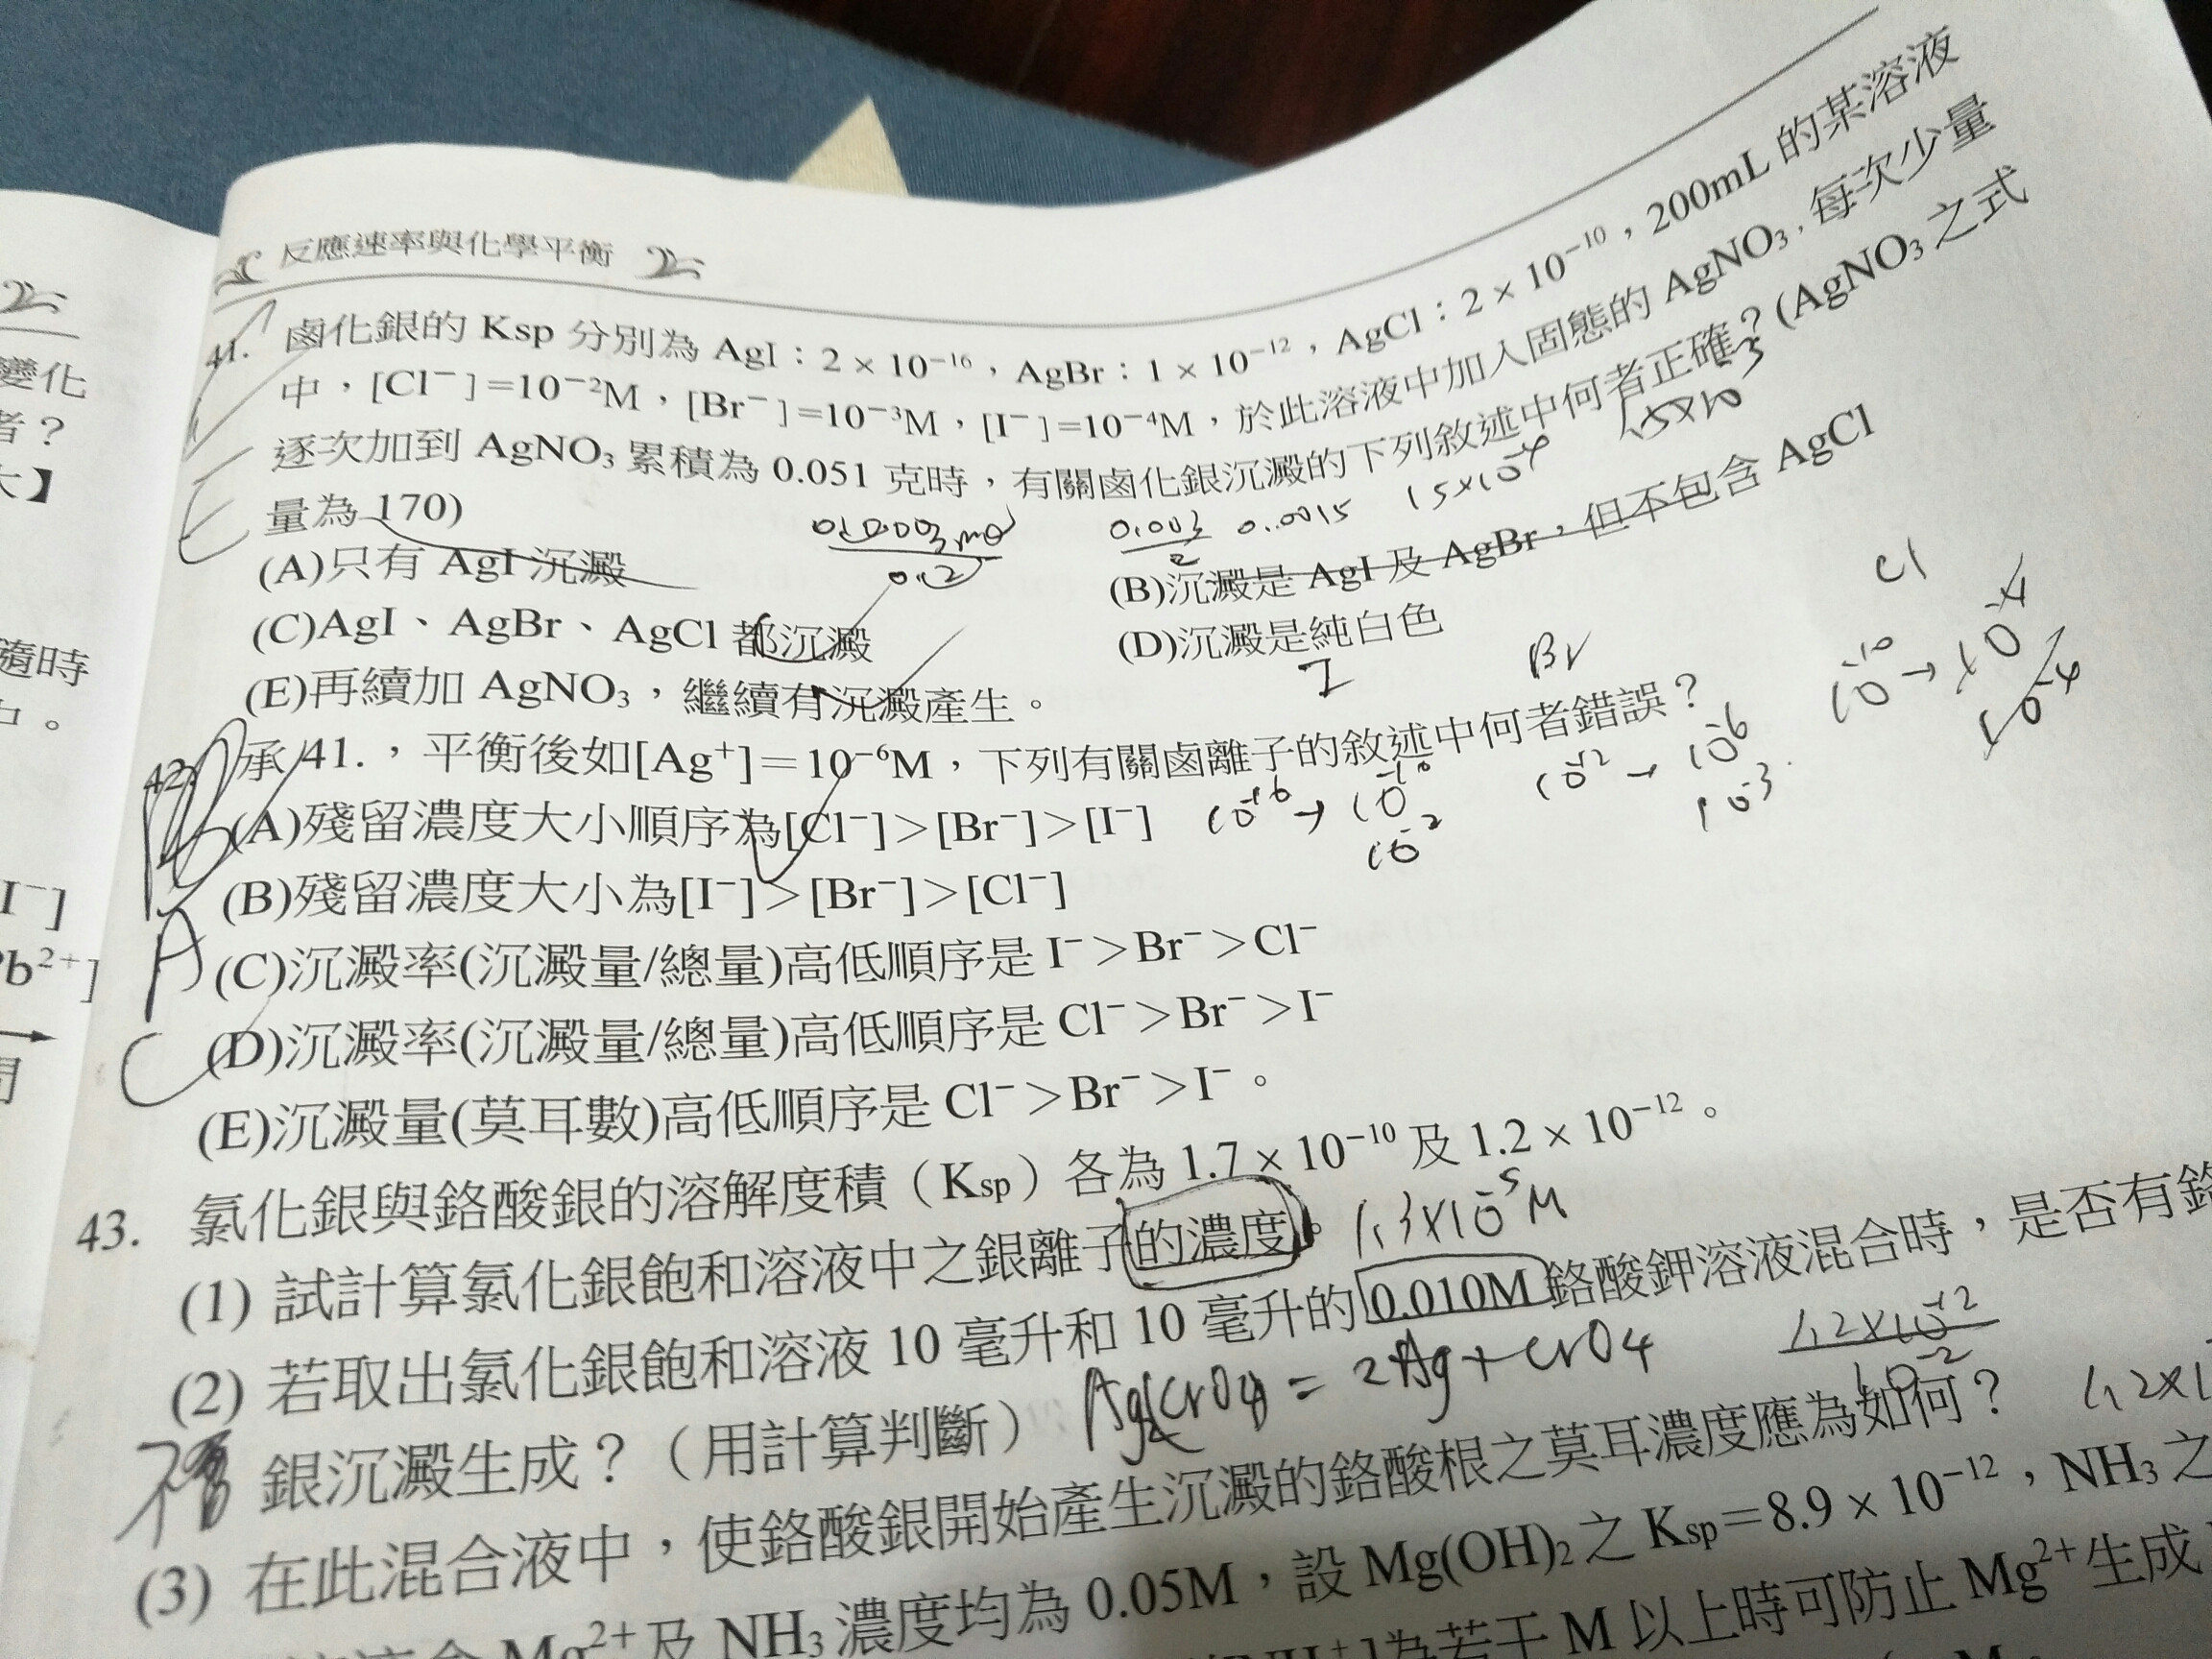 反應速率與化學平衡
41. 鹵化銀的 Ksp 分別為 AgI：2 × 10⁻¹⁶，AgBr：1 × 10⁻¹²，AgCl：2 × 10⁻¹⁰，200mL 的某溶液
中，[Cl⁻]=10⁻²M，[Br⁻]=10⁻³M，[I⁻]=10⁻⁴M，於此溶液中加入固態的 AgNO₃，每次少量
逐次加到 AgNO₃ 累積為 0.051 克時，有關鹵化銀沉澱的下列敘述中何者正確？(AgNO₃ 之式
量為 170)
0.003
2
0.0015
15×10⁻⁴
1.5×10⁻³
(A)只有 AgI 沉澱
(B)沉澱是 AgI 及 AgBr，但不包含 AgCl
(C)AgI、AgBr、AgCl 都沉澱
(D)沉澱是純白色
(E)再續加 AgNO₃，繼續有沉澱產生。
I
Br
Cl
42. 承 41.，平衡後如[Ag⁺]=10⁻⁶M，下列有關鹵離子的敘述中何者錯誤？
(A)殘留濃度大小順序為[Cl⁻]>[Br⁻]>[I⁻]
10⁻¹⁶→10⁻¹⁰
10⁻²
10⁻¹²→10⁻⁶
10⁻³
(B)殘留濃度大小為[I⁻]>[Br⁻]>[Cl⁻]
A
(C)沉澱率(沉澱量/總量)高低順序是 I⁻>Br⁻>Cl⁻
(D)沉澱率(沉澱量/總量)高低順序是 Cl⁻>Br⁻>I⁻
(E)沉澱量(莫耳數)高低順序是 Cl⁻>Br⁻>I⁻。
43. 氯化銀與鉻酸銀的溶解度積（Ksp）各為 1.7 × 10⁻¹⁰ 及 1.2 × 10⁻¹²。
(1) 試計算氯化銀飽和溶液中之銀離子的濃度。 1.3×10⁻⁵M
(2) 若取出氯化銀飽和溶液 10 毫升和 10 毫升的 0.010M 鉻酸鉀溶液混合時，是否有鉻
Ag₂CrO4 = 2Ag+CrO4
1.2×10⁻¹²
10⁻²
銀沉澱生成？（用計算判斷）
(3) 在此混合液中，使鉻酸銀開始產生沉澱的鉻酸根之莫耳濃度應為如何？
Mg²⁺及 NH₃ 濃度均為 0.05M，設 Mg(OH)₂ 之 Ksp=8.9 × 10⁻¹²，NH₃ 之
為若干 M 以上時可防止 Mg²⁺生成
變化
者？
大】
隨時
中。
I⁻]
Pb²⁺]